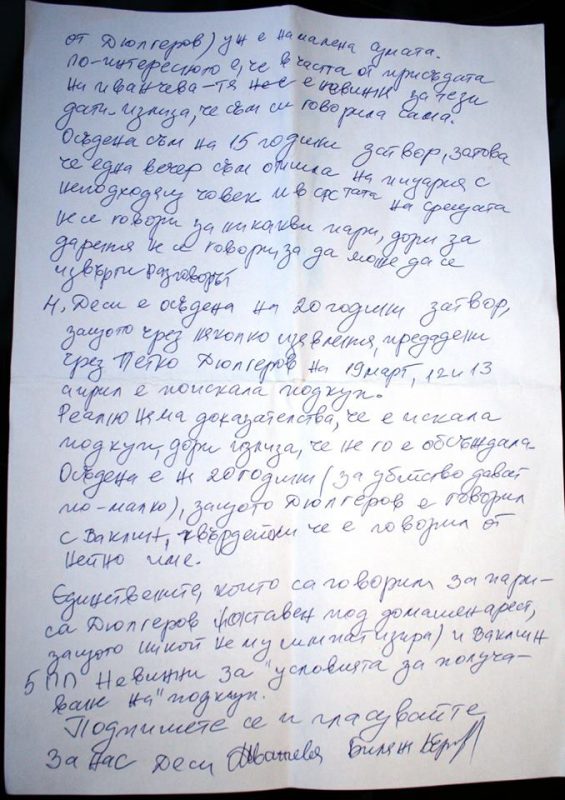 от Дюлгеров) уж е намалена сумата.
По-интересното е, че в частта от присъдата
на Иванчева – тя е невинна за тези
дати излиза, че съм си говорила сама.
Осъдена съм на 15 години затвор, затова
че една вечер съм отишла на пицария с
неподходящ човек и в от срещата
не се говори за никакви пари, дори за
дарения не се говори, за да може да се
извърти разговорът
4. Деси е осъдена на 20 години затвор,
защото чрез няколко изявления, предадени
чрез Петко Дюлгеров на 19 март, 12 и 13
април е поискала подкуп.
Реално няма доказателства, че е искала
подкуп, дори излиза, че не го е обсъждала.
Осъдена е на 20 години (за убийство дават
по-малко), защото Дюлгеров е говорил
с Ваклин, твърдейки че е говорил от
нейно име.
Единствените, които са говорили за пари –
са Дюлгеров (оставен под домашен арест,
защото никой не му симпатизира) и Ваклин
5 ПП Невинни за "условията за получа-
ване на" подкуп.
Подпишете се и гласувайте
за нас Деси Иванчева Биляна